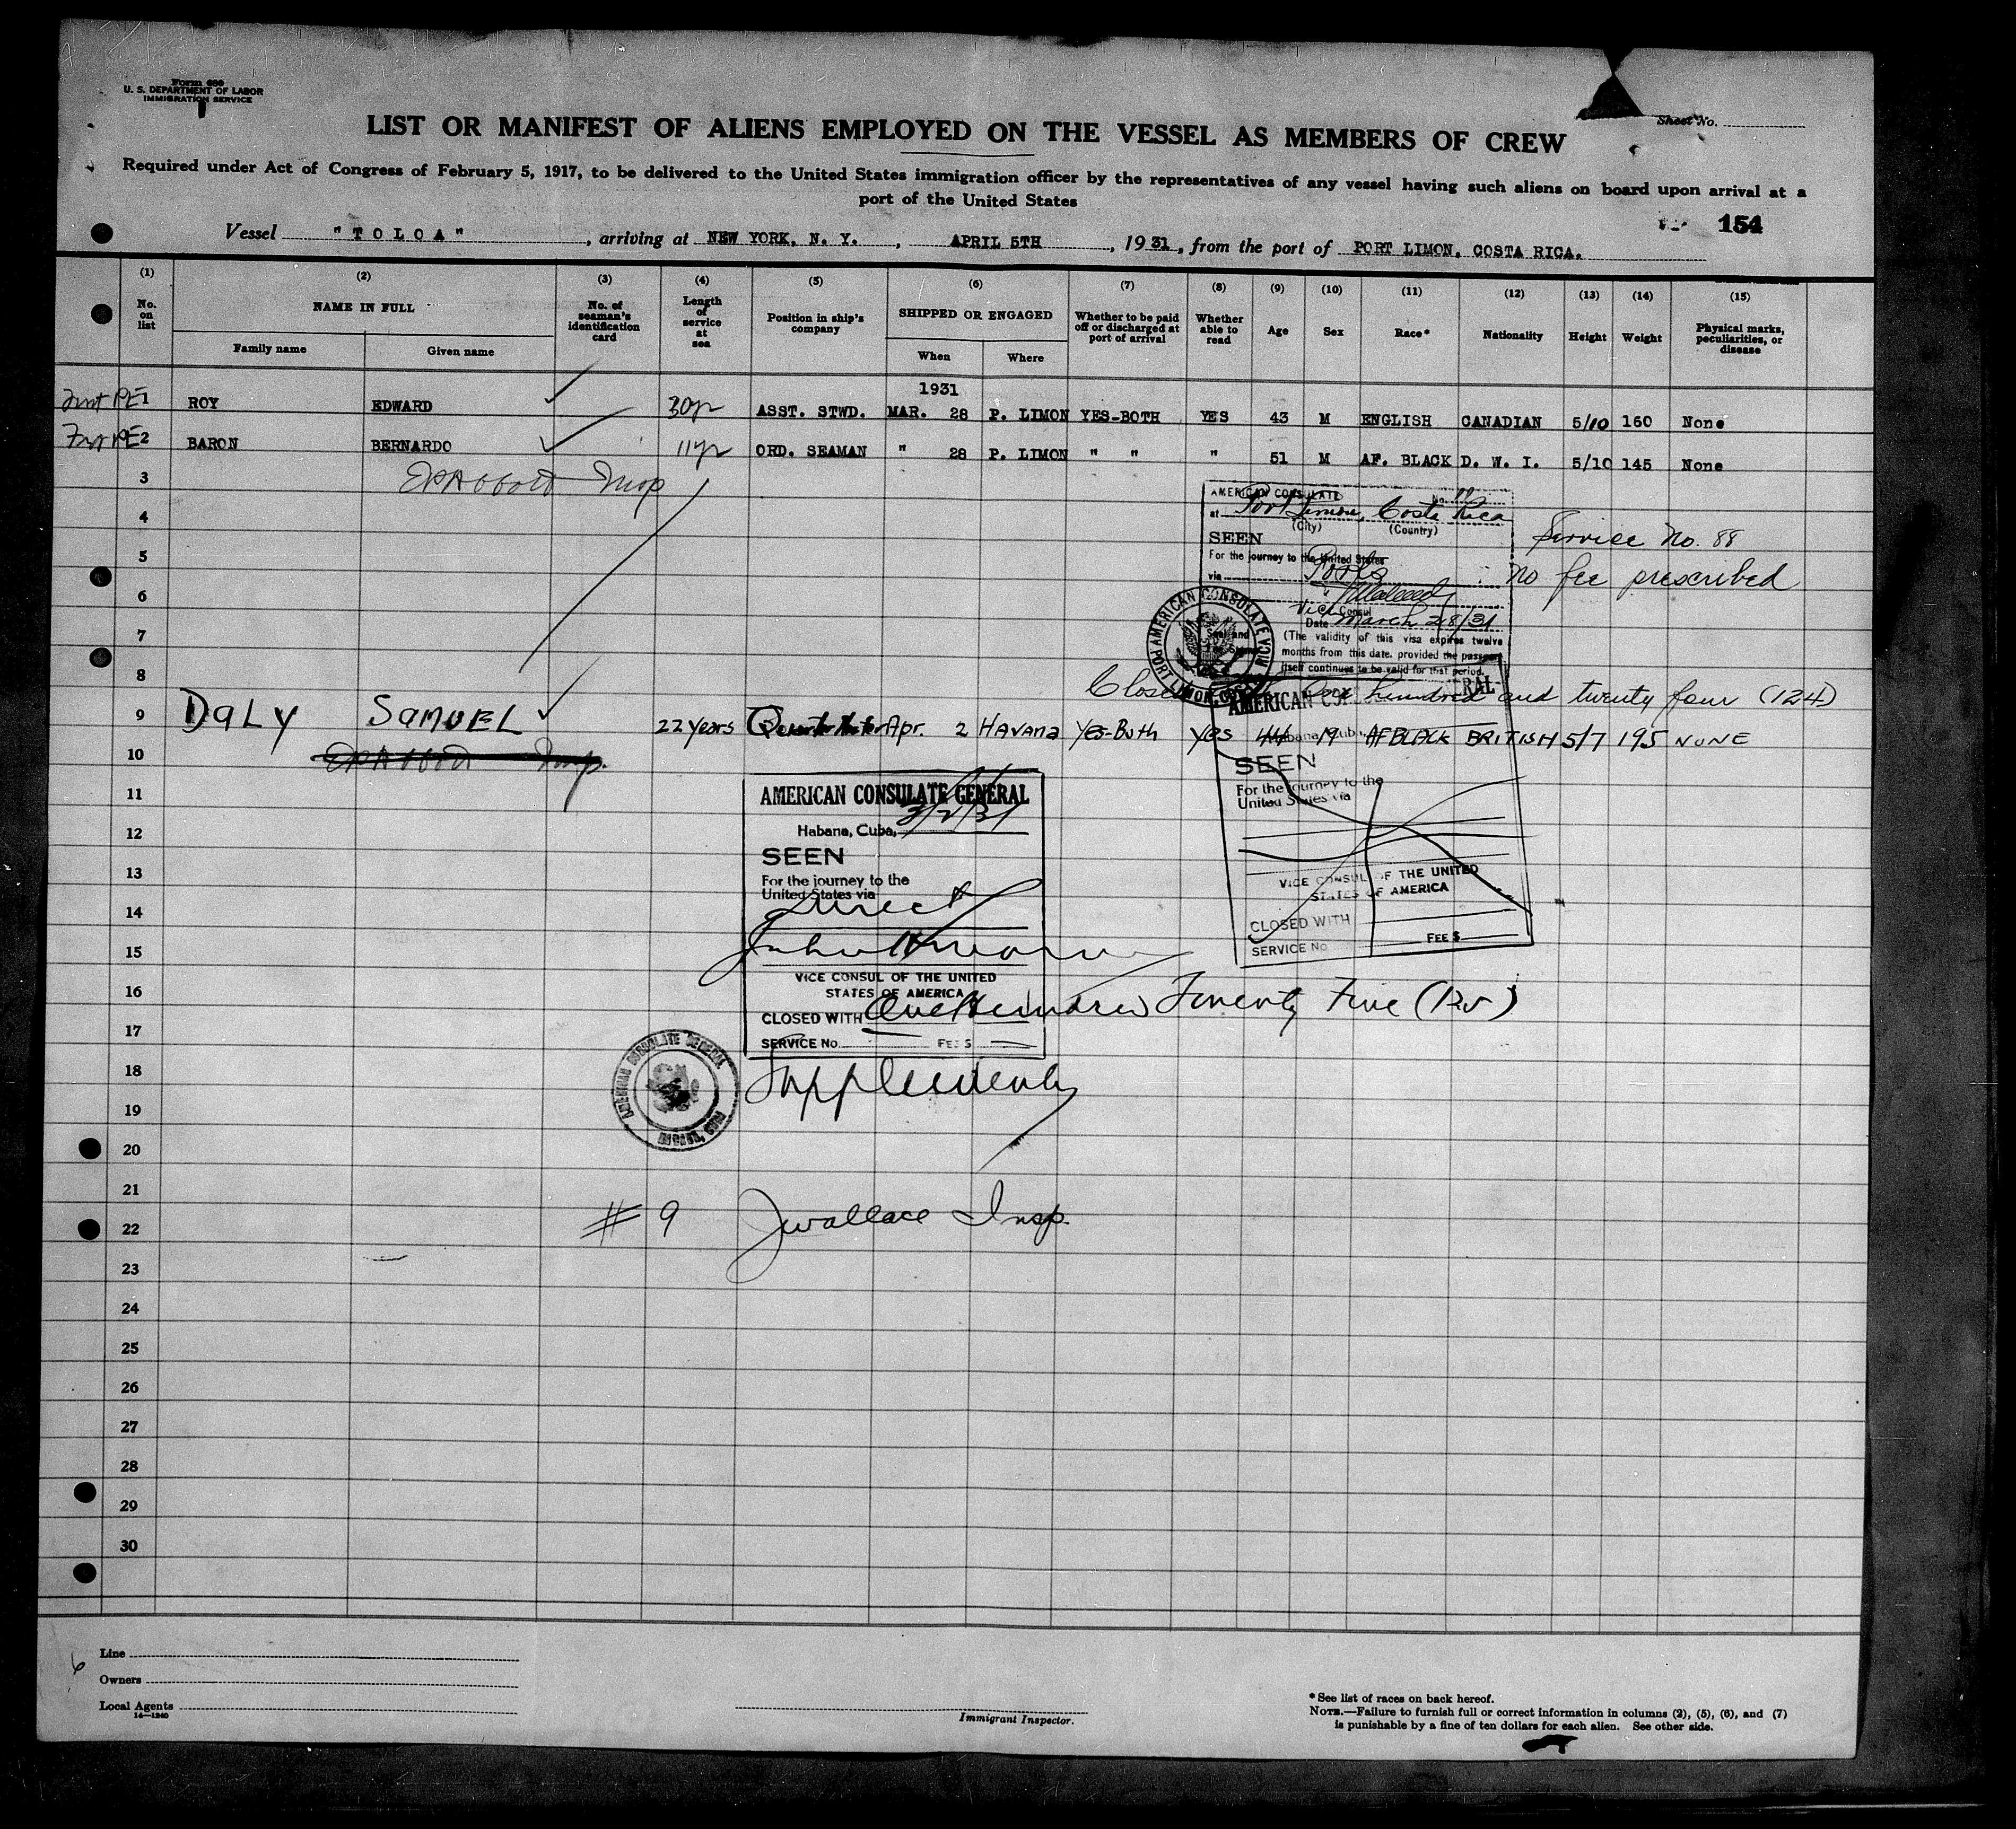 Form 680
U. S. DEPARTMENT OF LABOR
IMMIGRATION SERVICE
Sheet No.
LIST OR MANIFEST OF ALIENS EMPLOYED ON THE VESSEL AS MEMBERS OF CREW
Required under Act of Congress of February 5, 1917, to be delivered to the United States immigration officer by the representatives of any vessel having such aliens on board upon arrival at a
port of the United States
154
Vessel "TOLOA", arriving at NEW YORK, N. Y., APRIL 5TH, 1931, from the port of PORT LIMON, COSTA RICA.
(1) (2) (3) (4) (5) (6) (7) (8) (9) (10) (11) (12) (13) (14) (15)
No. on list NAME IN FULL Family name Given name No. of seaman's identification card Length of service at sea Position in ship's company SHIPPED OR ENGAGED When Where Whether to be paid off or discharged at port of arrival Whether able to read Age Sex Race* Nationality Height Weight Physical marks, peculiarities, or disease
1931
1 ROY EDWARD 30yr ASST. STWD. MAR. 28 P. LIMON YES-BOTH YES 43 M ENGLISH CANADIAN 5/10 160 None
2 BARON BERNARDO 11yr ORD. SEAMAN " 28 P. LIMON " " " 51 M AF. BLACK D. W. I. 5/10 145 None
3
AMERICAN CONSULATE No.
4
at Port Limon, Costa Rica
(City) (Country)
SEEN
Service No. 88
5
For the journey to the United States
via
No fee prescribed
6
Vice Consul
Date March 28/31
7
(The validity of this visa expires twelve
months from this date, provided the passport
itself continues to be valid for that period.
AMERICAN CONSULATE PORT LIMON
8
hundred and twenty four (124)
9 DALY SAMUEL 22 years Apr. 2 Havana Yes-Both Yes 44 M AF BLACK BRITISH 5/7 195 NONE
10
11
AMERICAN CONSULATE GENERAL
12
Habana, Cuba,
SEEN
13
For the journey to the
United States via
direct
14
15
VICE CONSUL OF THE UNITED
STATES OF AMERICA
16
CLOSED WITH One Hundred Twenty Five (125)
17
SERVICE No. FEE $
SEEN
For the journey to the
United States via
VICE CONSUL OF THE UNITED
STATES OF AMERICA
CLOSED WITH
SERVICE No. FEE $
AMERICAN CONSULATE GENERAL
HABANA, CUBA
18
19
20
21
22
# 9 JWallace Insp.
23
24
25
26
27
28
29
30
Line
Owners
Local Agents
14—1240
Immigrant Inspector.
* See list of races on back hereof.
NOTE.—Failure to furnish full or correct information in columns (2), (5), (6), and (7)
is punishable by a fine of ten dollars for each alien. See other side.